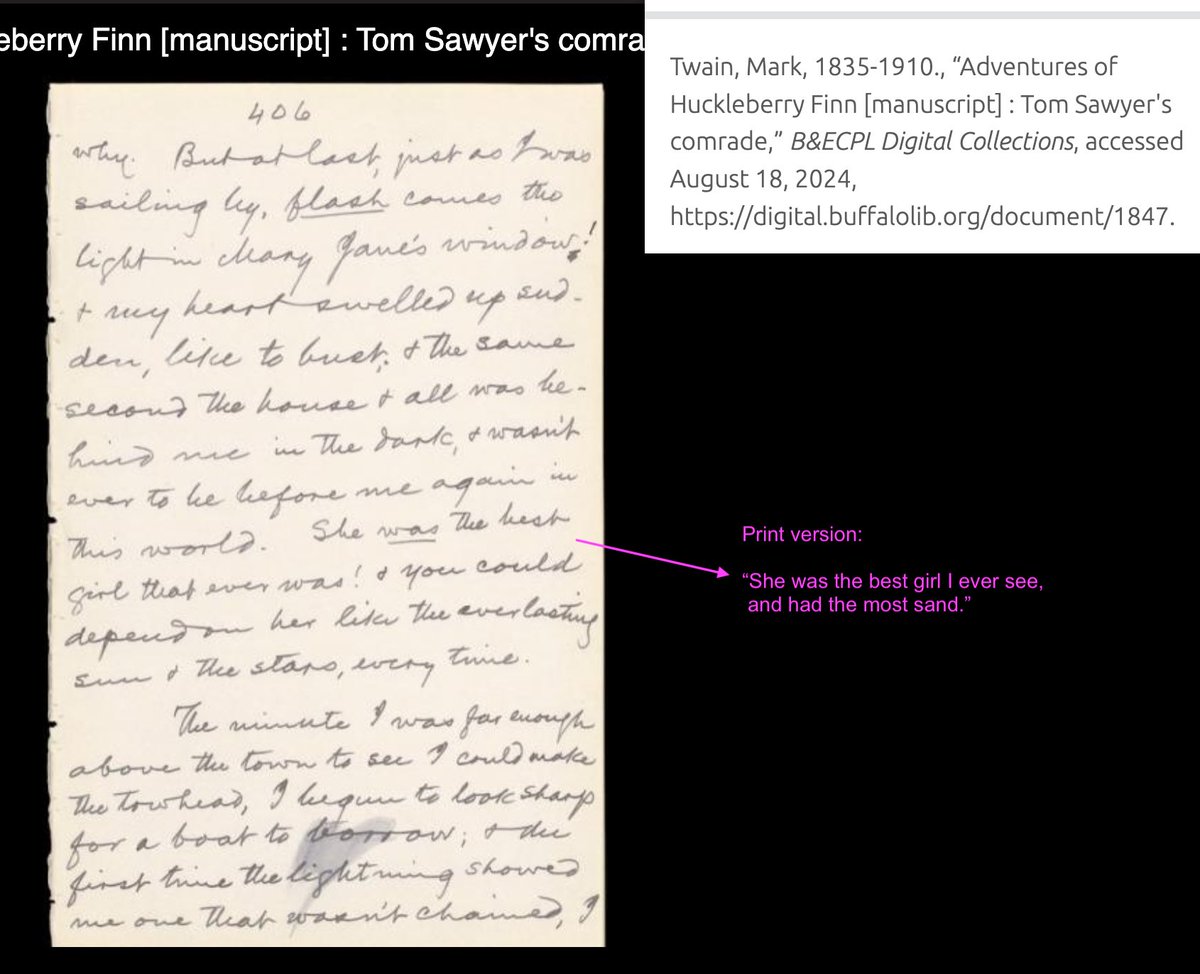 eberry Finn [manuscript] : Tom Sawyer's comra
Twain, Mark, 1835-1910., “Adventures of
Huckleberry Finn [manuscript] : Tom Sawyer's
comrade,” B&ECPL Digital Collections, accessed
August 18, 2024,
https://digital.buffalolib.org/document/1847.
406
why. But at last, just as I was
sailing by, flash comes the
light in Mary Jane's window!
& my heart swelled up sud-
den, like to bust; & the same
second the house & all was be-
hind me in the dark, & wasn't
ever to be before me again in
this world. She was the best
girl that ever was! & you could
depend on her like the everlasting
sun & the stars, every time.
The minute I was far enough
above the town to see I could make
the towhead, I begun to look sharp
for a boat to borrow; & the
first time the lightning showed
me one that wasn't chained, I
Print version:
“She was the best girl I ever see,
and had the most sand.”